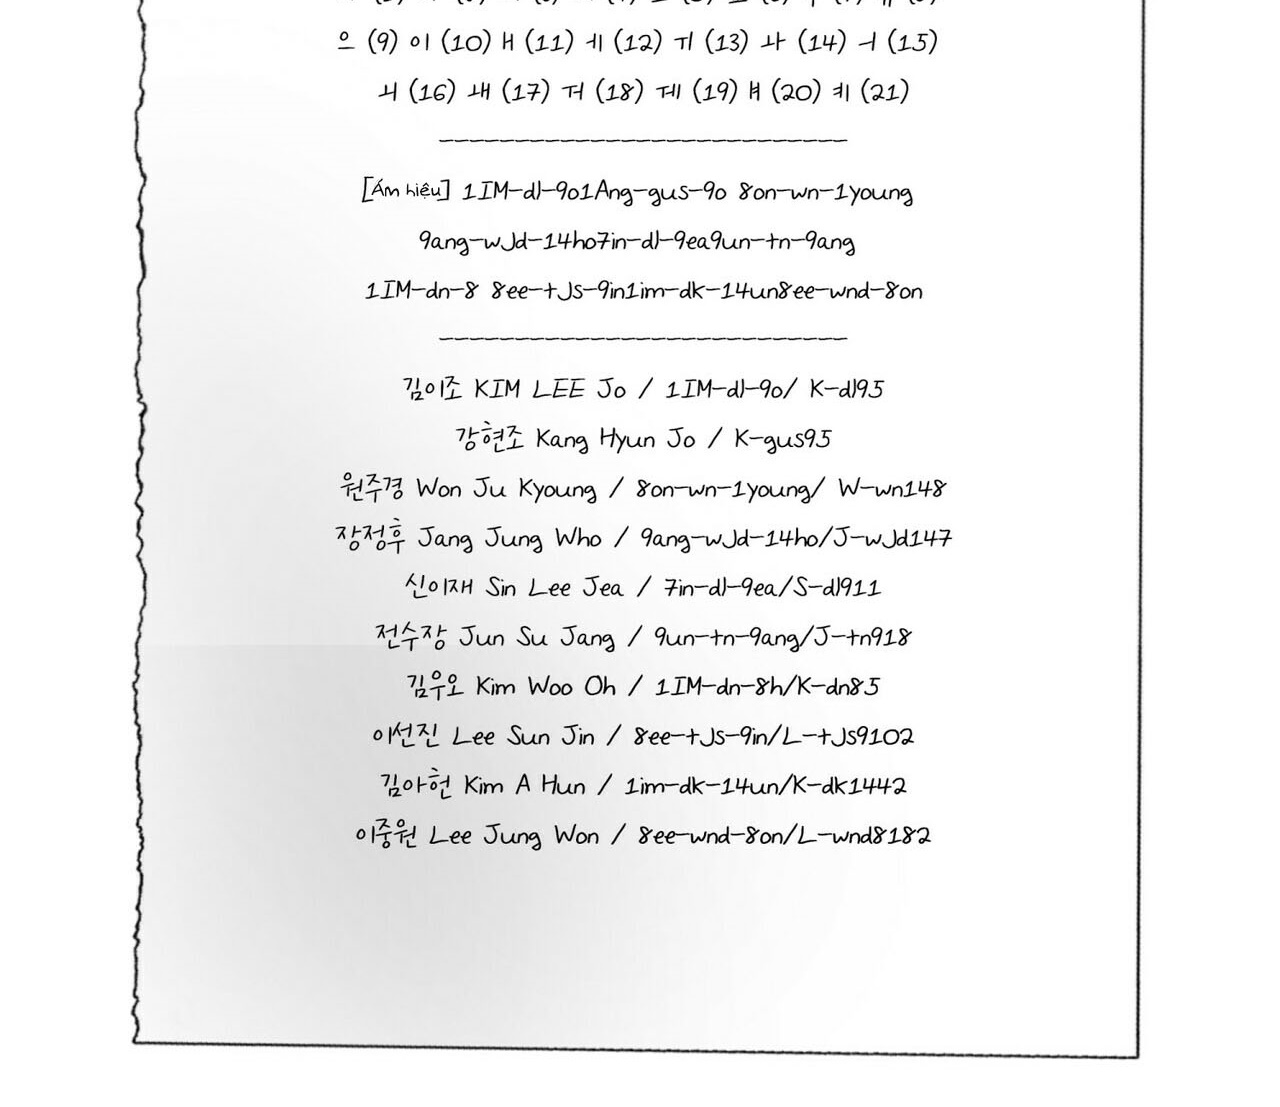 으 (9) 이 (10) ㅐ (11) ㅔ (12) ㅟ (13) ㅘ (14) ㅓ (15)
ㅝ (16) ㅙ (17) ㅝ (18) ㅞ (19) ㅒ (20) ㅖ (21)
[Ám hiệu] 1IM-dl-9o1Ang-gus-9o 8on-wn-1young
9ang-wJd-14ho7in-dl-9ea9un-tn-9ang
1IM-dn-8 8ee-tJs-9in1im-dk-14un8ee-wnd-8on
김이조 KIM LEE Jo / 1IM-dl-9o/ K-dl95
강현조 Kang Hyun Jo / K-gus95
원주경 Won Ju Kyoung / 8on-wn-1young/ W-wn148
장정후 Jang Jung Who / 9ang-wJd-14ho/J-wJd147
신이재 Sin Lee Jea / 7in-dl-9ea/S-dl911
전수장 Jun Su Jang / 9un-tn-9ang/J-tn918
김우오 Kim Woo Oh / 1IM-dn-8h/K-dn85
이선진 Lee Sun Jin / 8ee-tJs-9in/L-tJs9102
김아헌 Kim A Hun / 1im-dk-14un/K-dk1442
이중원 Lee Jung Won / 8ee-wnd-8on/L-wnd8182